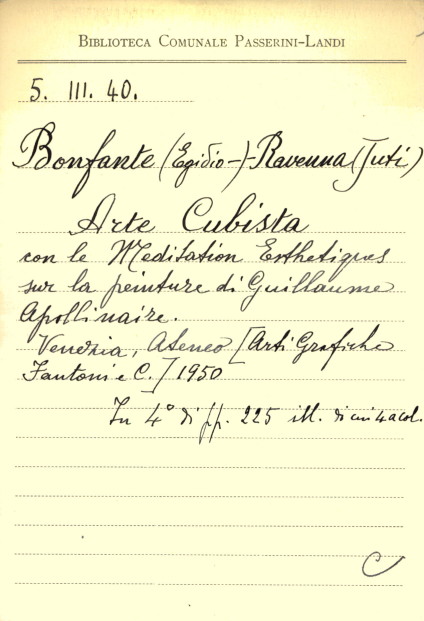 BIBLIOTECA COMUNALE PASSERINI-LANDI
5. III. 40.
Bonfante (Egidio-)-Ravenna (Juti)
Arte Cubista
con le Meditation Esthetiques
sur la peinture di Guillaume
Apollinaire.
Venezia, Ateneo [Arti Grafiche
Fantoni e C.] 1950
In 4° di pp. 225 ill. di cui 4 a col.
C